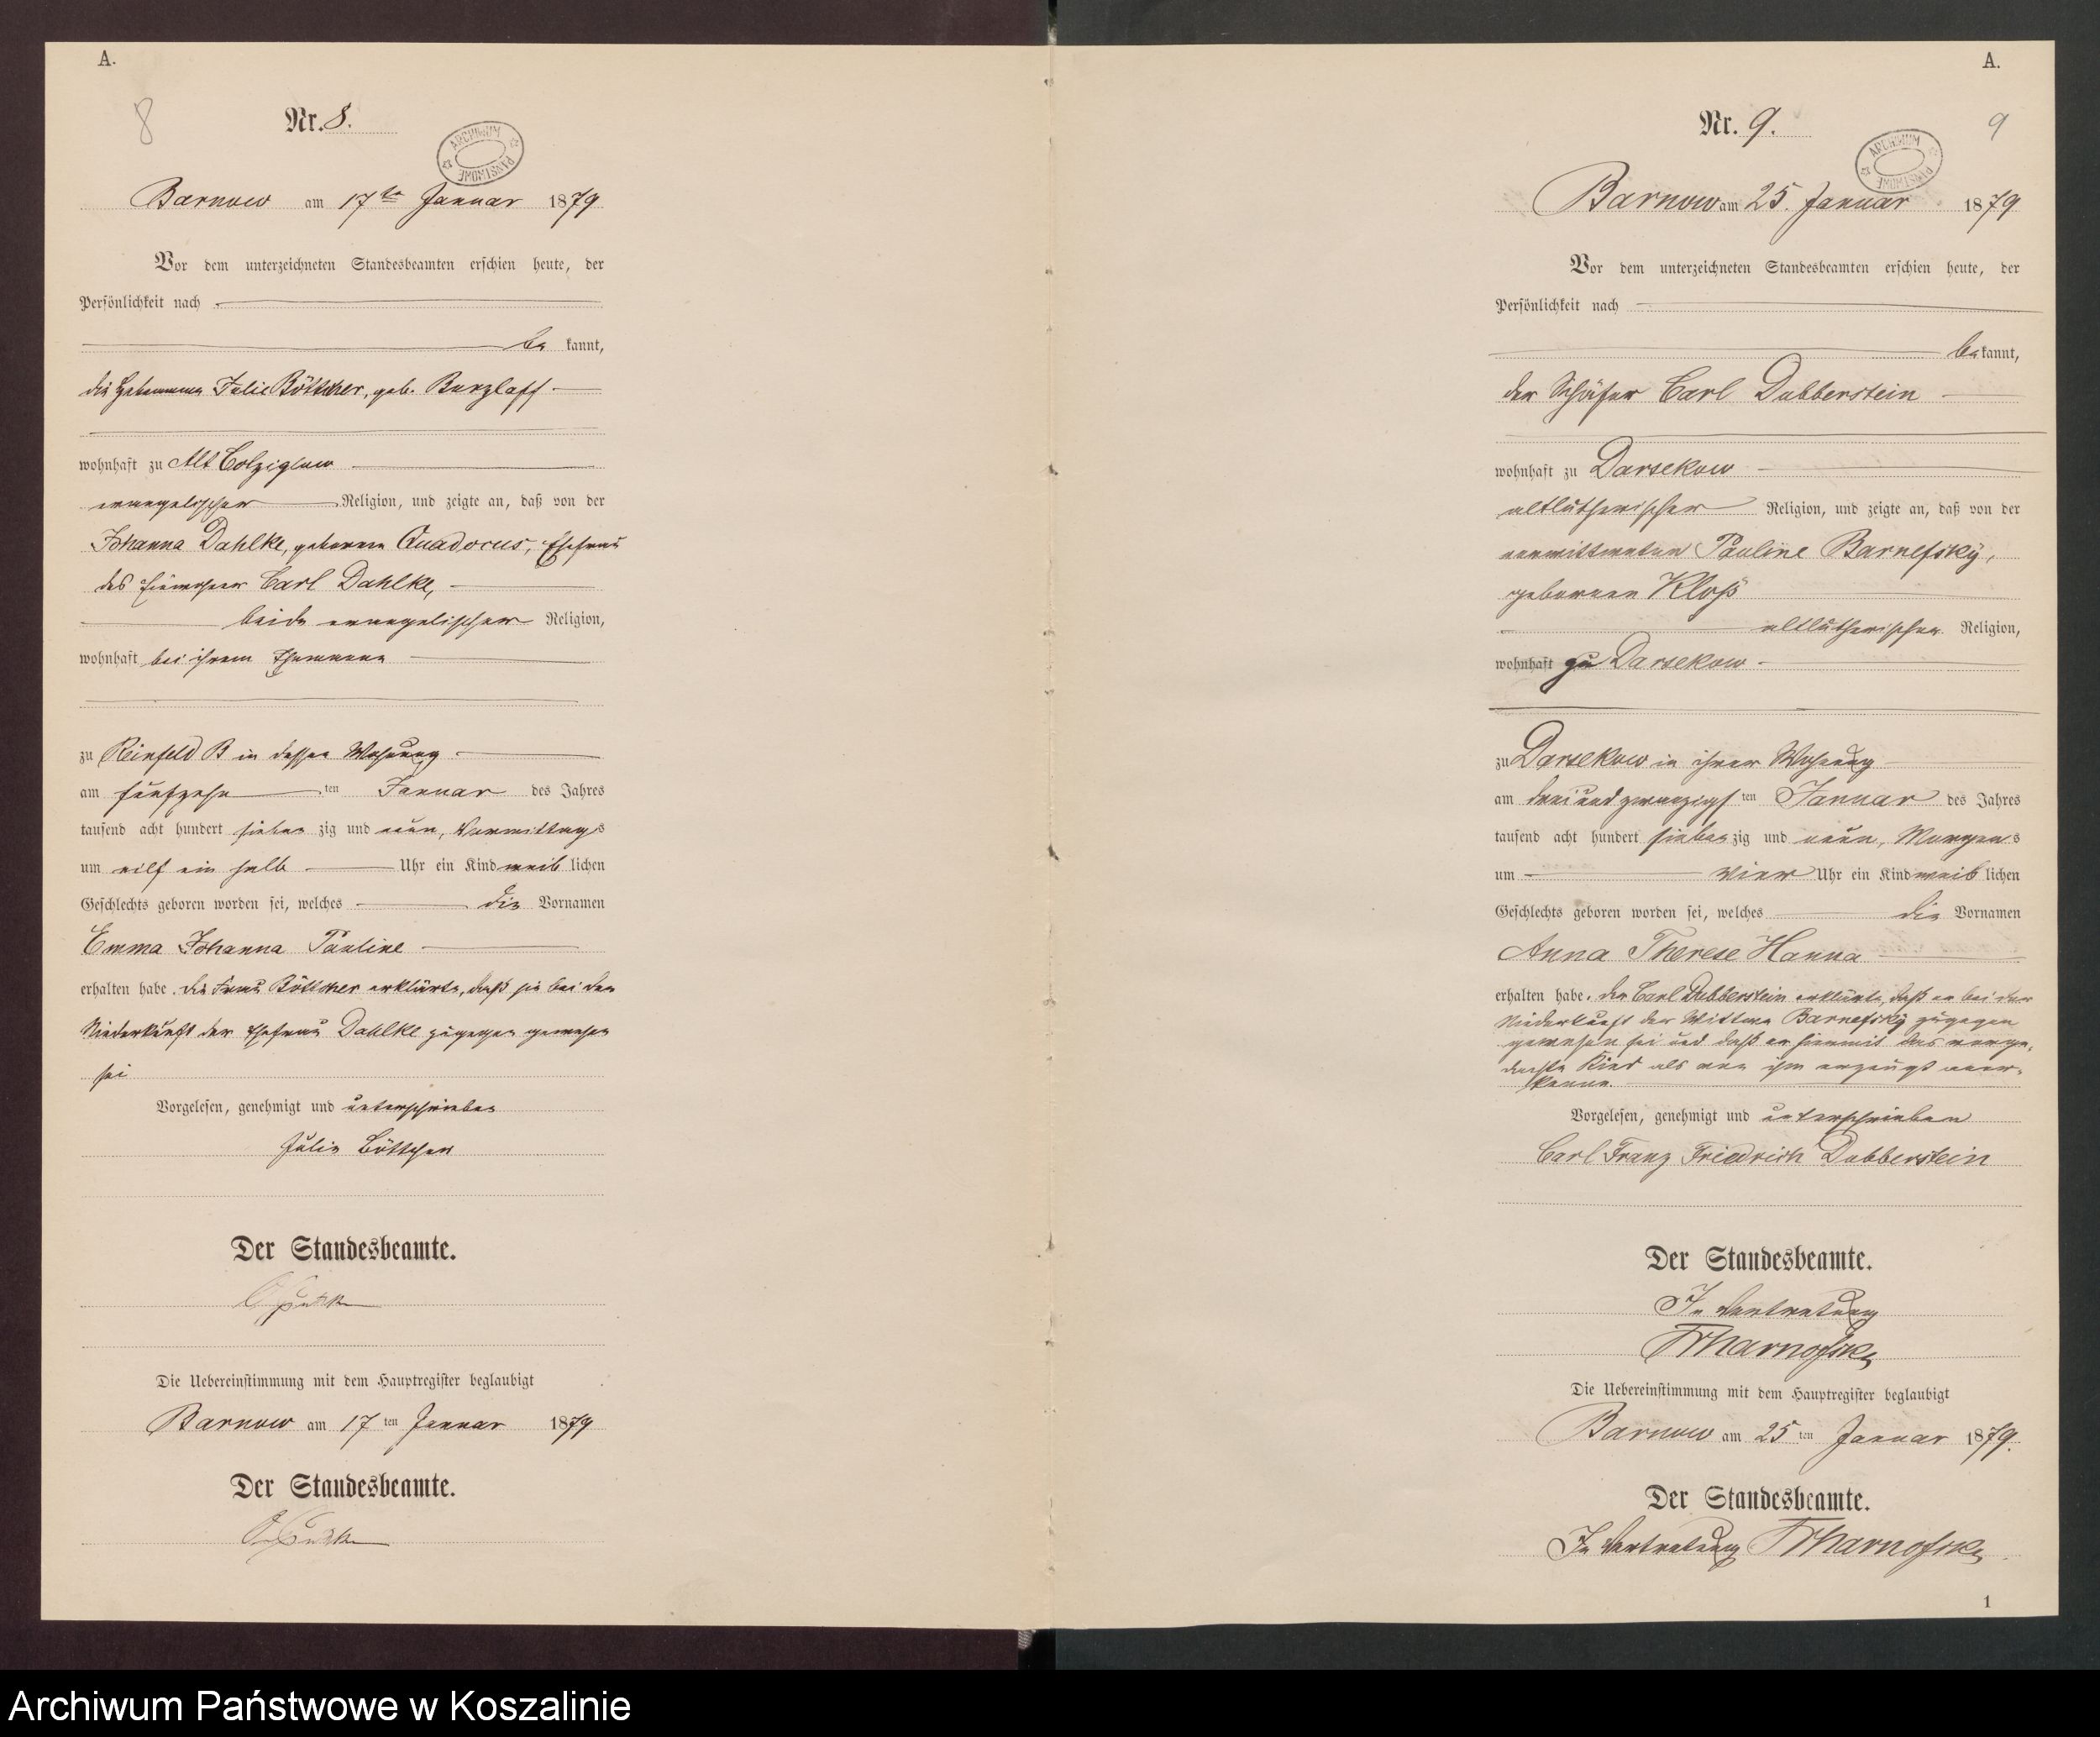 A.
8
Nr. 8.
ARCHIWUM PAŃSTWOWE
Barnow am 17ten Januar 1879
Vor dem unterzeichneten Standesbeamten erschien heute, der
Persönlichkeit nach
be kannt,
die Hebamme Julie Böttcher, geb. Burzlaff
wohnhaft zu Alt Colziglow
evangelischer Religion, und zeigte an, daß von der
Johanna Dahlke, geborene Quadocus, Ehefrau
des Carl Dahlke,
beide evangelischer Religion,
wohnhaft bei ihrem Ehemanne
zu Reinfeld B in dessen Wohnung
am fünfzehn ten Januar des Jahres
tausend acht hundert sieben zig und neun, Vormittags
um eilf ein halb Uhr ein Kind weib lichen
Geschlechts geboren worden sei, welches die Vornamen
Emma Johanna Pauline
erhalten habe. Die Frau Böttcher erklärte, daß sie bei der
Niederkunft der Ehefrau Dahlke zugegen gewesen
sei
Vorgelesen, genehmigt und unterschrieben
Julie Böttcher
Der Standesbeamte.
Die Uebereinstimmung mit dem Hauptregister beglaubigt
Barnow am 17 ten Januar 1879
Der Standesbeamte.
A.
9
Nr. 9.
ARCHIWUM PAŃSTWOWE
Barnow am 25. Januar 1879
Vor dem unterzeichneten Standesbeamten erschien heute, der
Persönlichkeit nach
be kannt,
der Schäfer Carl Dubberstein
wohnhaft zu Darsekow
altlutherischer Religion, und zeigte an, daß von der
verwittweten Pauline Barnefsky,
geborenen Kloß
altlutherischer Religion,
wohnhaft zu Darsekow
zu Darsekow in ihrer Wohnung
am dreiundzwanzigs ten Januar des Jahres
tausend acht hundert sieben zig und neun, Morgens
um vier Uhr ein Kind weib lichen
Geschlechts geboren worden sei, welches die Vornamen
Anna Therese Hanna
erhalten habe. Der Carl Dubberstein erklärte, daß er bei der
Niederkunft der Wittwe Barnefsky zugegen
gewesen sei und daß er hiermit das vorge-
dachte Kind als von ihm erzeugt aner-
kenne.
Vorgelesen, genehmigt und unterschrieben
Carl Franz Friedrich Dubberstein
Der Standesbeamte.
In Vertretung
Die Uebereinstimmung mit dem Hauptregister beglaubigt
Barnow am 25 ten Januar 1879.
Der Standesbeamte.
In Vertretung
1
Archiwum Państwowe w Koszalinie